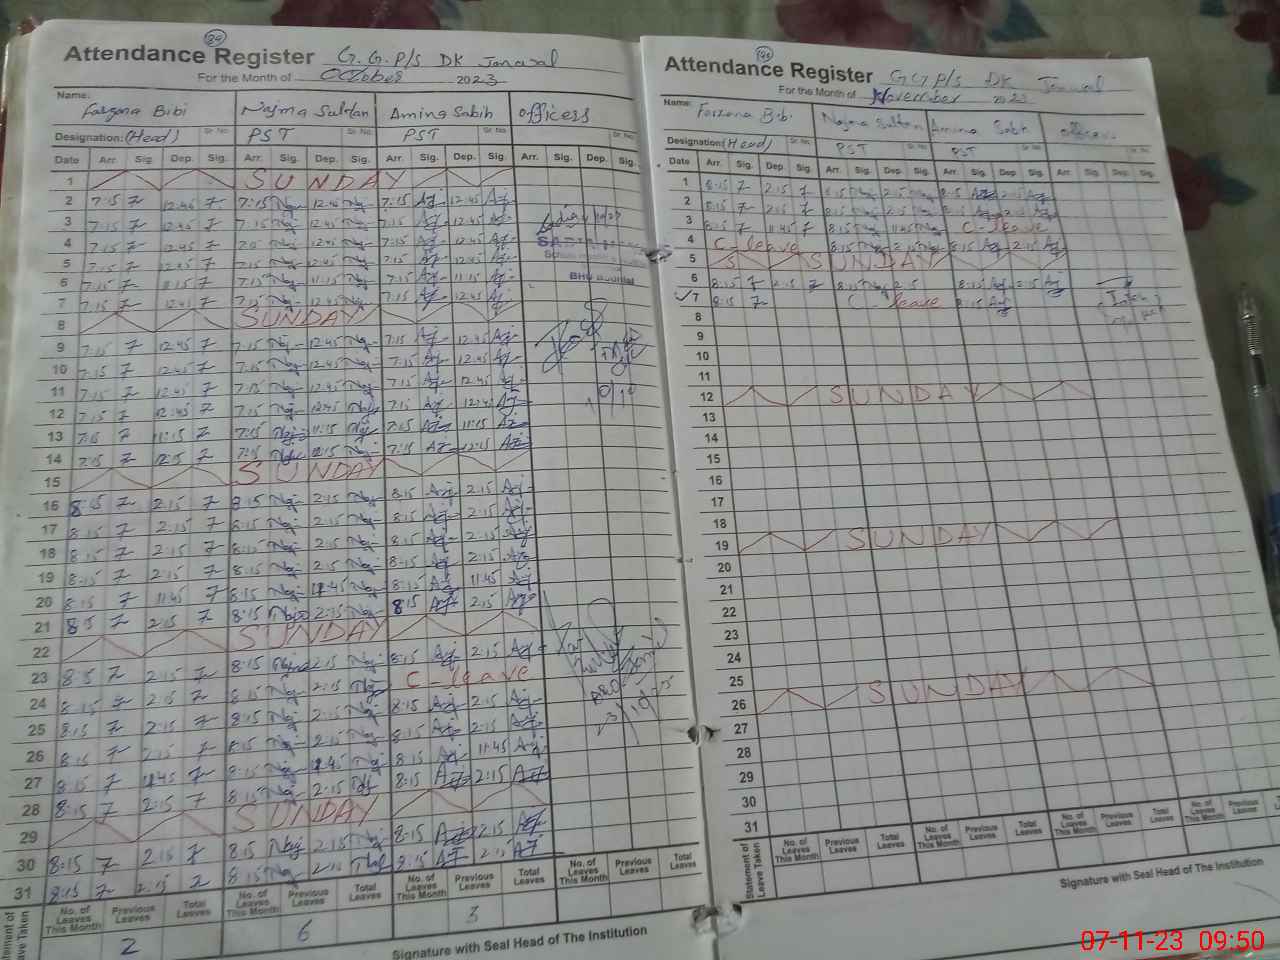 29
Attendance Register G.G.P/S DK Janwal
For the Month of October 2023
Name: Farzana Bibi Najma Sultan Amina Sabih officers
Designation: (Head) Sr. No. PST Sr. No. PST Sr. No. Sr. No.
Date Arr. Sig. Dep. Sig. Arr. Sig. Dep. Sig. Arr. Sig. Dep. Sig. Arr. Sig. Dep. Sig.
1 SUNDAY
2 7:15 12:45 7:15 12:45 7:15 12:45
3 7:15 12:45 7:15 12:45 7:15 12:45
4 7:15 12:45 7:15 12:45 7:15 12:45
5 7:15 12:45 7:15 12:45 7:15 12:45
6 7:15 11:15 7:15 11:15 7:15 11:15
7 7:15 12:45 7:15 12:45 7:15 12:45
8 SUNDAY
9 7:15 12:45 7:15 12:45 7:15 12:45
10 7:15 12:45 7:15 12:45 7:15 12:45
11 7:15 12:45 7:15 12:45 7:15 12:45
12 7:15 12:45 7:15 12:45 7:15 12:45
13 7:15 11:15 7:15 11:15 7:15 11:15
14 7:15 12:15 7:15 12:15 7:15 12:15
15 SUNDAY
16 8:15 2:15 8:15 2:15 8:15 2:15
17 8:15 2:15 8:15 2:15 8:15 2:15
18 8:15 2:15 8:15 2:15 8:15 2:15
19 8:15 2:15 8:15 2:15 8:15 2:15
20 8:15 11:45 8:15 11:45 8:15 11:45
21 8:15 2:15 8:15 2:15 8:15 2:15
22 SUNDAY
23 8:15 2:15 8:15 2:15 8:15 2:15
24 8:15 2:15 8:15 2:15 C-leave
25 8:15 2:15 8:15 2:15 8:15 2:15
26 8:15 2:15 8:15 2:15 8:15 2:15
27 8:15 11:45 8:15 11:45 8:15 11:45
28 8:15 2:15 8:15 2:15 8:15 2:15
29 SUNDAY
30 8:15 2:15 8:15 2:15 8:15 2:15
31 8:15 2:15 8:15 2:15 8:15 2:15
No. of Leaves This Month Previous Leaves Total Leaves No. of Leaves This Month Previous Leaves Total Leaves No. of Leaves This Month Previous Leaves Total Leaves No. of Leaves This Month Previous Leaves Total Leaves
2 6 3
Signature with Seal Head of The Institution
Attendance Register GGP/S DK Janwal
For the Month of November 2023
Name: Farzana Bibi Najma Sultan Amina Sabih officers
Designation: (Head) Sr. No. PST Sr. No. PST Sr. No. Sr. No.
Date Arr. Sig. Dep. Sig. Arr. Sig. Dep. Sig. Arr. Sig. Dep. Sig. Arr. Sig. Dep. Sig.
1 8:15 2:15 8:15 2:15 8:15 2:15
2 8:15 2:15 8:15 2:15 8:15 2:15
3 8:15 11:45 8:15 11:45 C-leave
4 C-leave 8:15 2:15 8:15 2:15
5 SUNDAY
6 8:15 2:15 8:15 2:15 8:15 2:15
7 8:15 C leave 8:15
8
9
10
11
12 SUNDAY
13
14
15
16
17
18
19 SUNDAY
20
21
22
23
24
25
26 SUNDAY
27
28
29
30
31
Statement of Leave Taken No. of Leaves This Month Previous Leaves Total Leaves No. of Leaves This Month Previous Leaves Total Leaves No. of Leaves This Month Previous Leaves Total Leaves No. of Leaves This Month Previous Leaves
Signature with Seal Head of The Institution
07-11-23 09:50